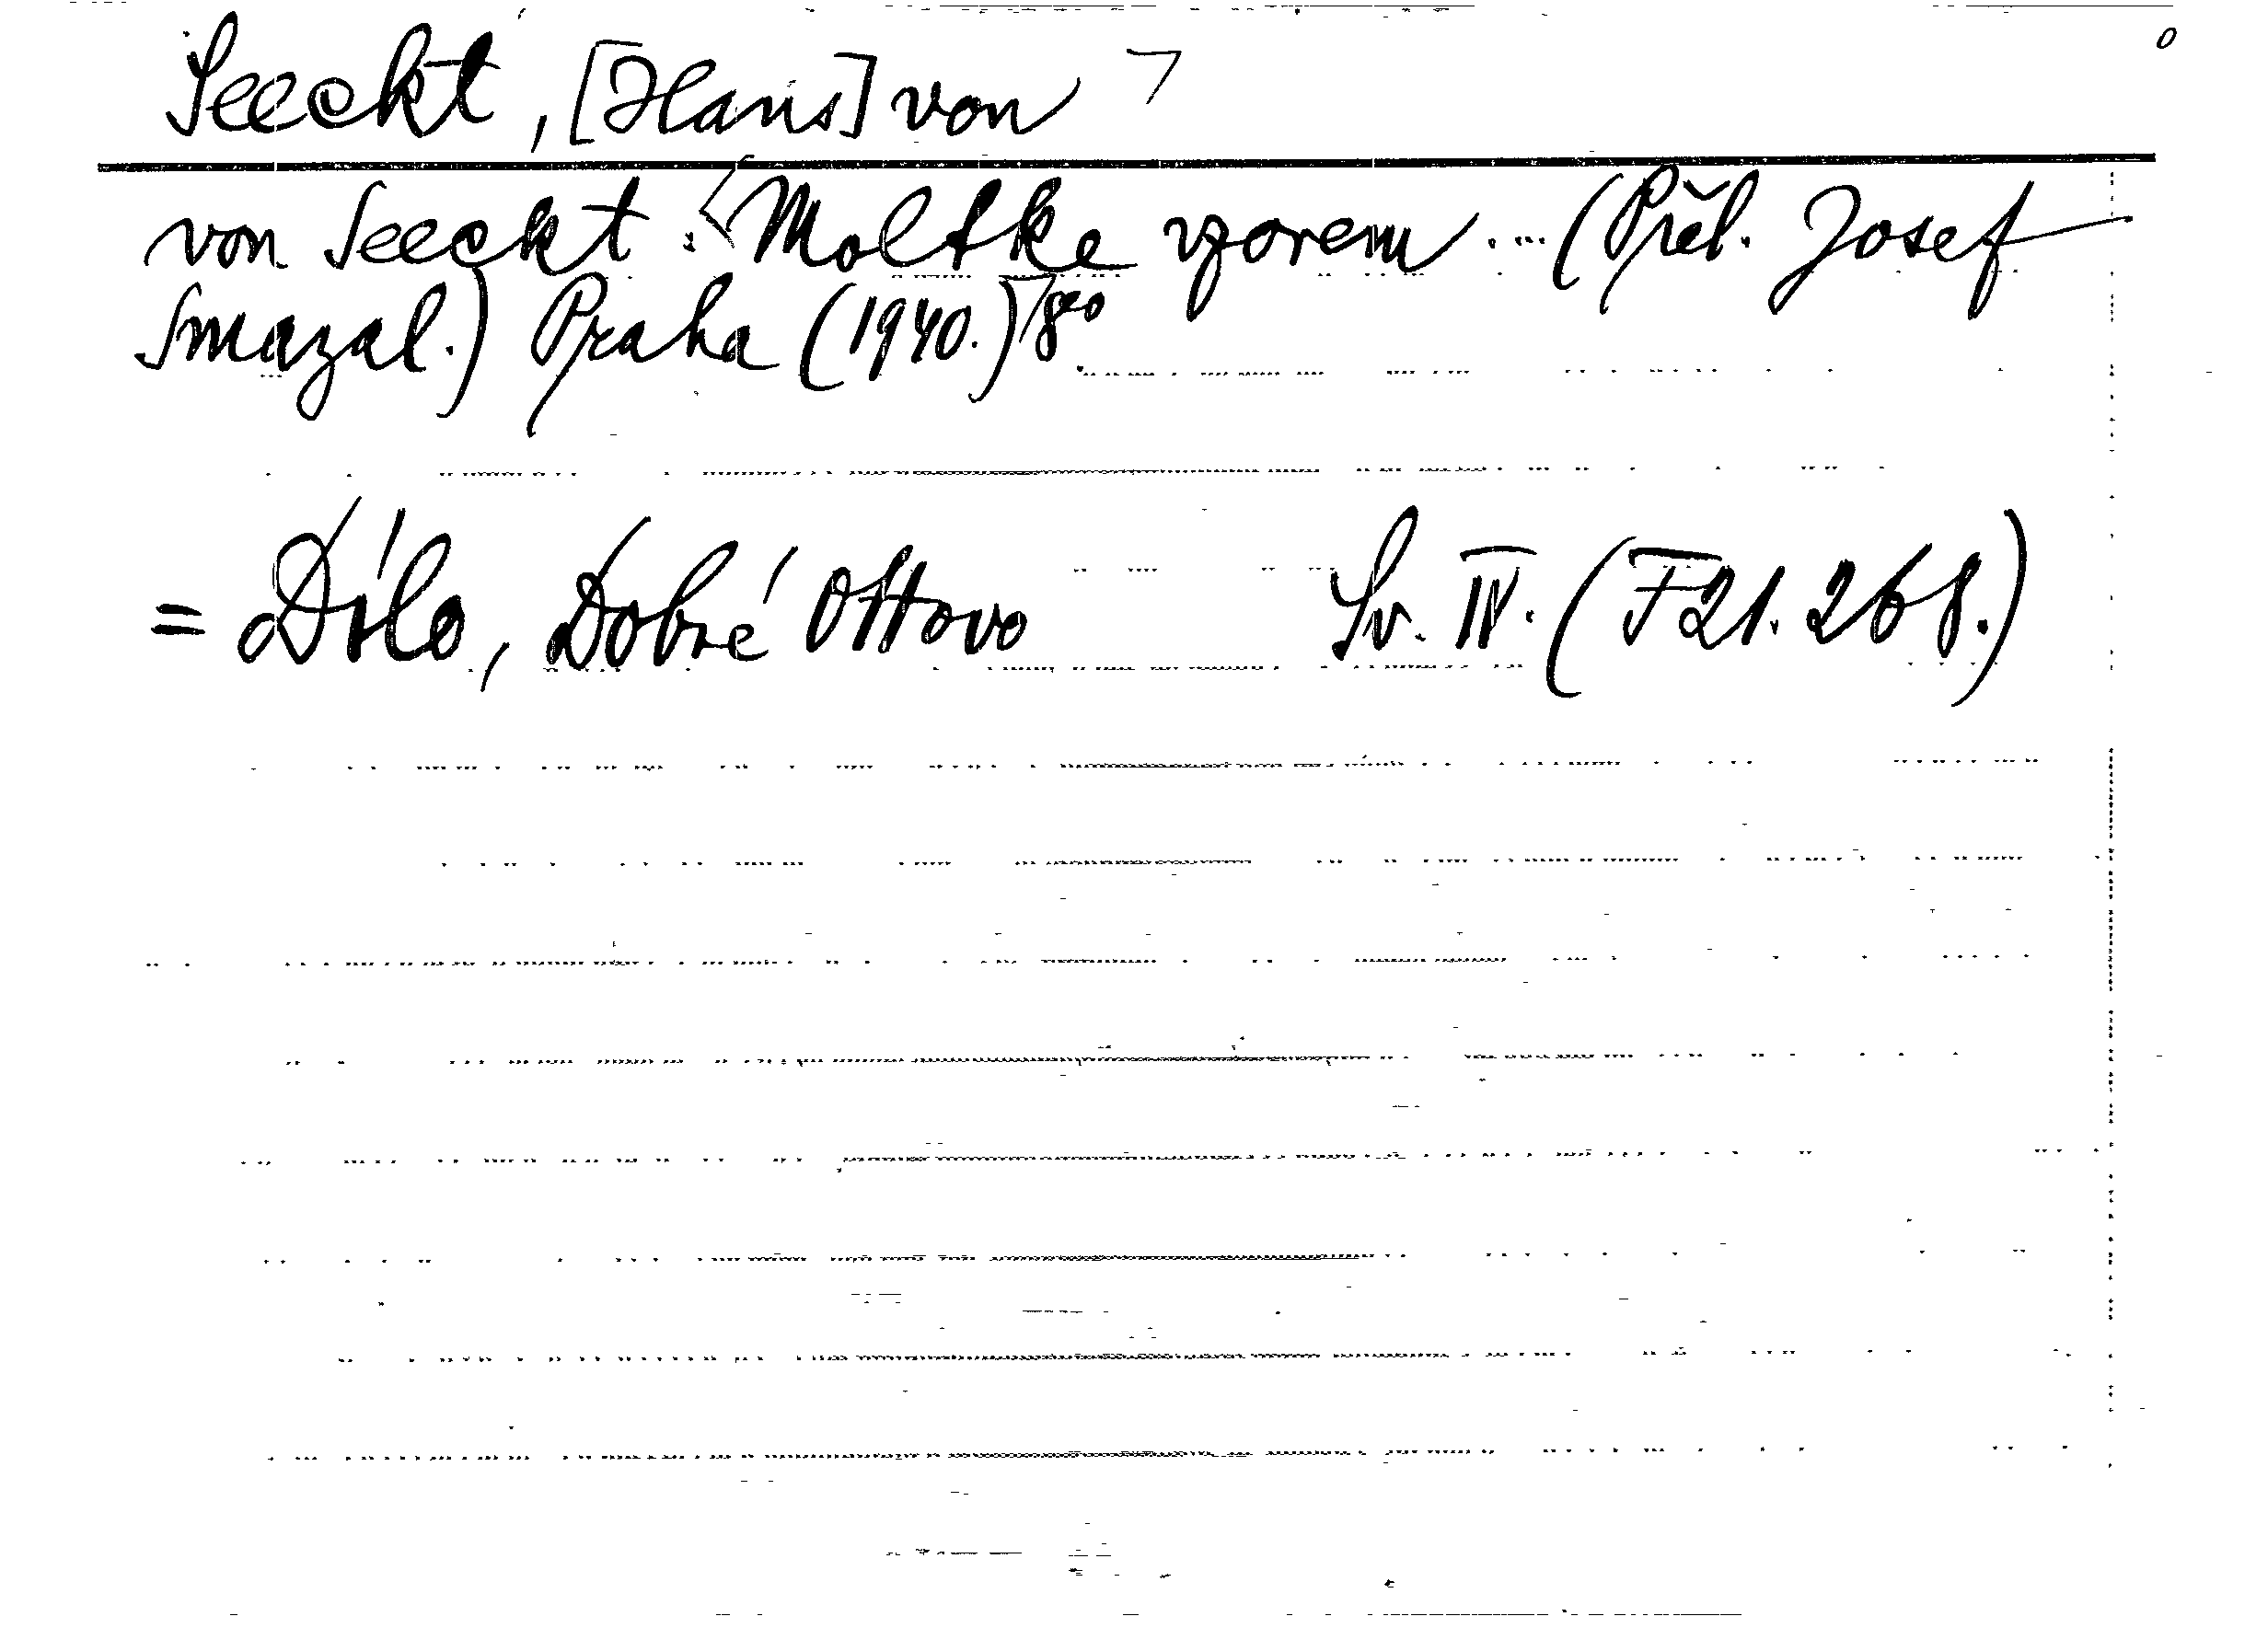 Seeckt, [Hans] von
von Seeckt: Moltke vzorem ... (Přel. Josef
Smazal.) Praha (1940.) 8°
= Dílo, Dobré Ottovo Sv. IV. (F 21.268.)